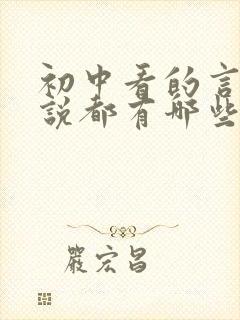 初中看的言
说都有哪些
严宏昌